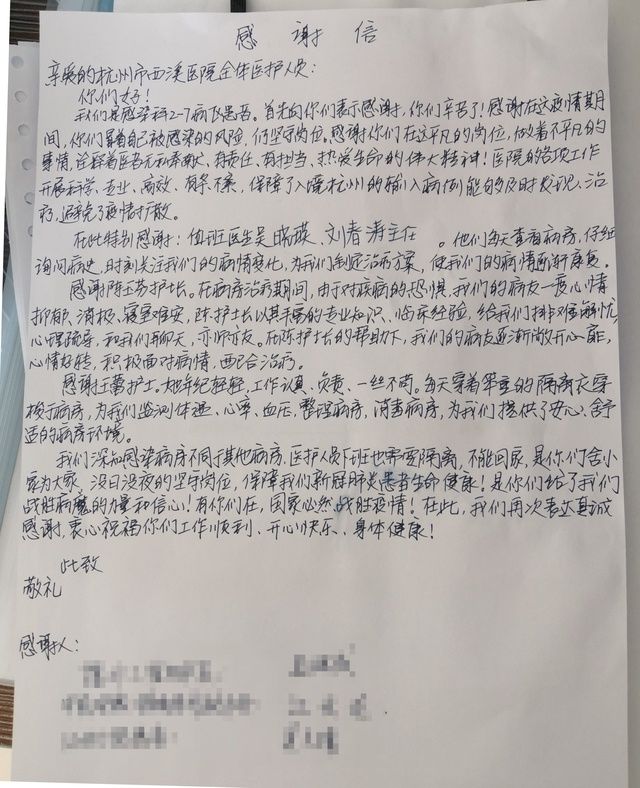 感谢信
亲爱的杭州市西溪医院全体医护人员：
你们好！
我们是感染科2-7病区患者。首先向你们表示感谢，你们辛苦了！感谢在这疫情期
间，你们冒着自己被感染的风险，仍坚守岗位。感谢你们在这平凡的岗位，做着不平凡的
事情，诠释着医者无私奉献、有责任、有担当、热爱生命的伟大精神！医院的各项工作
开展科学、专业、高效、有条不紊，保障了入境杭州的输入病例能够及时发现、治
疗，避免了疫情扩散。
在此特别感谢：值班医生吴晓瑛、刘春涛主任。他们每天查看病房，仔细
询问病史，时刻关注我们的病情变化，为我们制定治疗方案，使我们的病情逐渐康复。
感谢陈士芳护长。在病房治疗期间，由于对疾病的恐惧，我们的病友一度心情
抑郁、消极、寝室难安，陈护士长以其丰富的专业知识、临床经验，给我们排难解忧
心理疏导，和我们聊天，亦师亦友。在陈护士长的帮助下，我们的病友逐渐敞开心扉，
心情好转，积极面对病情，配合治疗。
感谢王蕾护士。她年纪轻轻，工作认真、负责、一丝不苟。每天穿着笨重的隔离衣穿
梭于病房，为我们监测体温、心率、血压，整理病房，消毒病房，为我们提供了安心、舒
适的病房环境。
我们深知感染病房不同于其他病房，医护人员下班也需要隔离，不能回家，是你们舍小
家为大家，没日没夜的坚守岗位，保障我们新冠肺炎患者生命健康！是你们给了我们
战胜病魔的力量和信心！有你们在，国家必然战胜疫情！在此，我们再次表达真诚
感谢，衷心祝福你们工作顺利、开心快乐、身体健康！
此致
敬礼
感谢人：